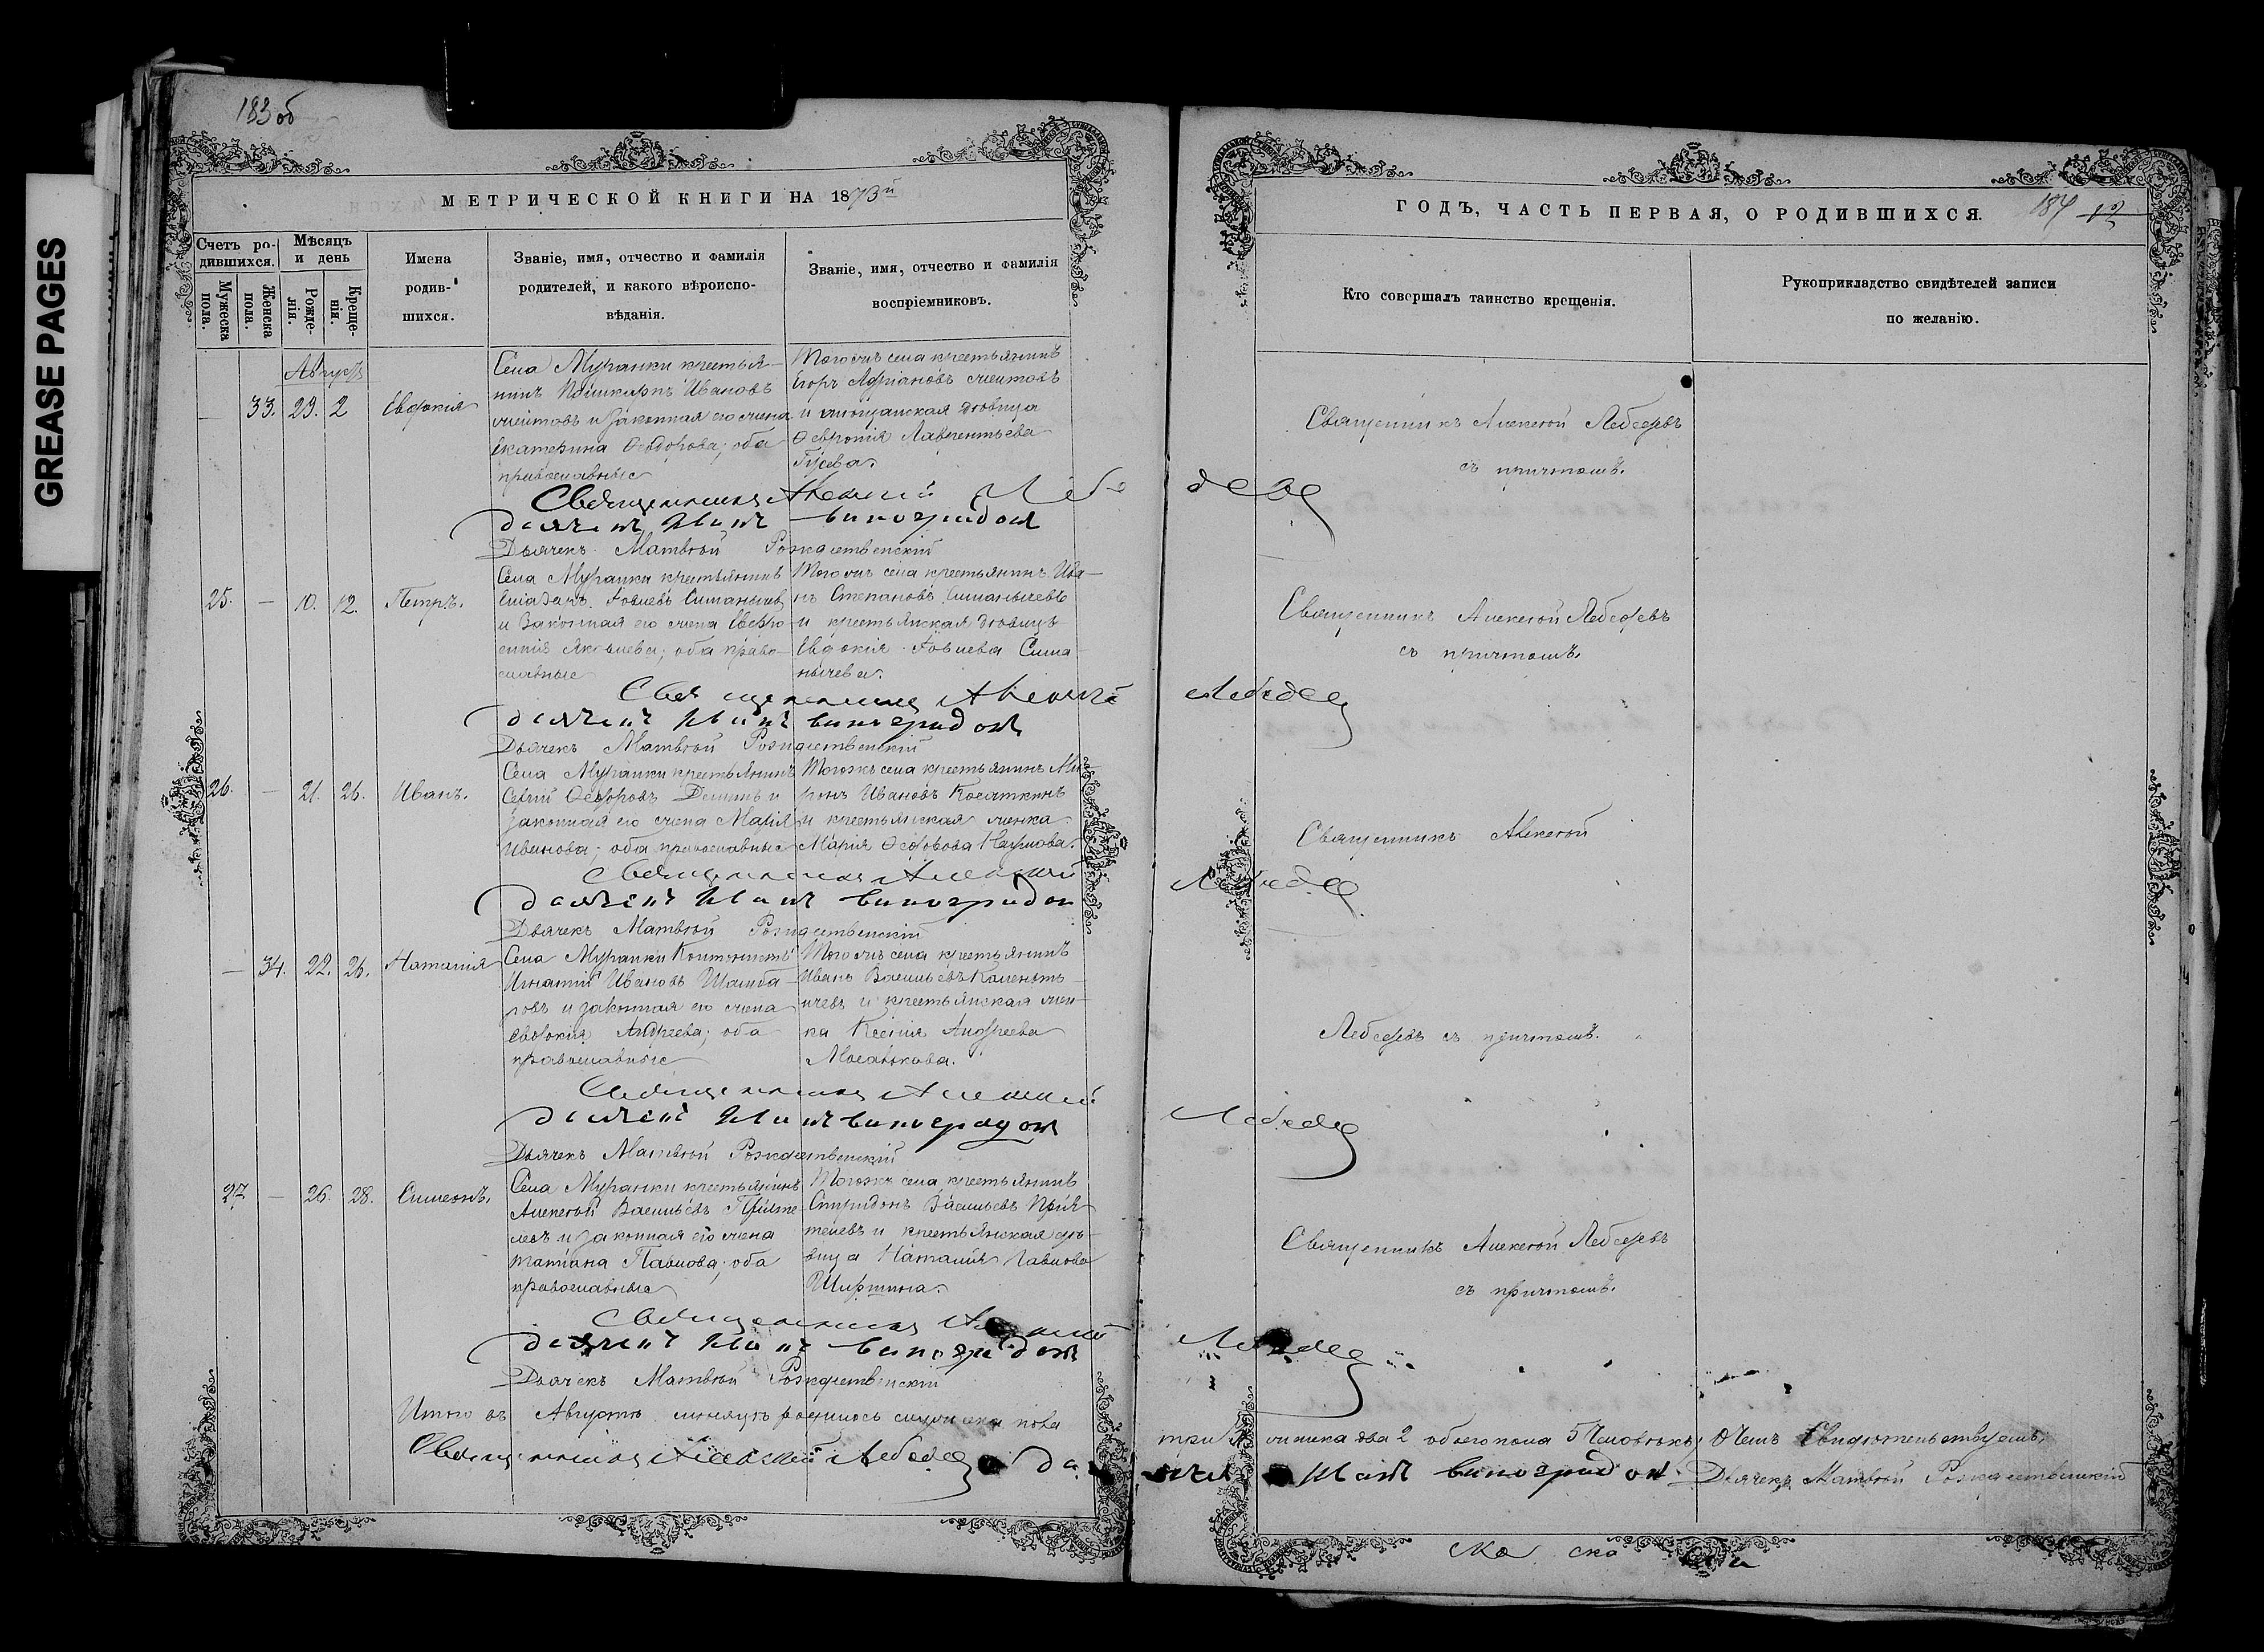 GREASE PAGES
183 об
МЕТРИЧЕСКОЙ КНИГИ НА 1873й
Счетъ ро-
дившихся.
Мужеска
пола.
Женска
пола.
Мѣсяцъ
и день
Рожде-
нія.
Креще-
нія.
Имена
родив-
шихся.
Званіе, имя, отчество и фамилія
родителей, и какого вѣроиспо-
вѣданія.
Званіе, имя, отчество и фамилія
воспріемниковъ.
ГОДЪ, ЧАСТЬ ПЕРВАЯ, О РОДИВШИХСЯ.
184
Кто совершалъ таинство крещенія.
Рукоприкладство свидѣтелей записи
по желанію.
Августъ
— 33. 29. 2 Евдокія
Села Муранки крестья-
нинъ Ивановъ
и законная его жена
Екатерина Ѳеодорова; оба
православные
Тогожъ села крестьянинъ
Егоръ Адріановъ
и дѣвица
Ѳевронія Лаврентьева
Гусева.
Священникъ Алексѣй Лебедевъ
съ причтомъ.
Священникъ Алексій Лебедев
діяконъ Иванъ виноградов
Дьячекъ Матвѣй Рождественскій
25. — 10. 12. Петръ.
Села Муранки крестьянинъ
Іовлевъ
и законная его жена Евдо-
Яковлева; оба право-
славные
Тогожъ села крестьянинъ Ива-
нъ Степановъ Симанычевъ
и крестьянская дѣвица
Евдокія Іовлева Сима-
нычева.
Священникъ Алексѣй Лебедевъ
съ причтомъ.
Священникъ Алексій Лебедев
діяконъ Иванъ виноградов
Дьячекъ Матвѣй Рождественскій
26. — 21. 26. Иванъ.
Села Муранки крестьянинъ
Сергій Ѳеодоровъ Деминъ и
законная его жена Марія
Иванова; оба православные
Тогожъ села крестьянинъ Ми-
ронъ Ивановъ Косяткинъ
и крестьянская женка
Марія Ѳеодорова Наумова.
Священникъ Алексѣй
Священникъ Алексій Лебедев
діяконъ Иванъ виноградов
Дьячекъ Матвѣй Рождественскій
— 34. 22. 26. Наталія
Села Муранки
Игнатій Ивановъ Шамба-
ровъ и законная его жена
Евдокія Андреева; оба
православные
Тогожъ села крестьянинъ
Иванъ Васильевъ
и крестьянская жен-
ка Ксенія Андреева
Лебедевъ съ причтомъ.
Священникъ Алексій Лебедев
діяконъ Иванъ виноградов
Дьячекъ Матвѣй Рождественскій
27 — 26. 28. Симеонъ.
Села Муранки крестьянинъ
Алексѣй Васильевъ Пріяте
левъ и законная его жена
Татіана Павлова; оба
православные
Тогожъ села крестьянинъ
Спиридонъ Васильевъ Прія-
телевъ и крестьянская дѣ-
вица Наталія Павлова
Ширшина.
Священникъ Алексѣй Лебедевъ
съ причтомъ.
Священникъ Алексій Лебедев
діяконъ Иванъ виноградов
Дьячекъ Матвѣй Рождественскій
Итого въ Августѣ мѣсяцѣ родилось мужеска пола три 3 женска два 2 обоего пола 5 Человѣкъ; въ Чемъ Свидѣтельствуемъ;
Священникъ Алексій Лебедев діяконъ Иванъ виноградов Дьячекъ Матвѣй Рождественскій